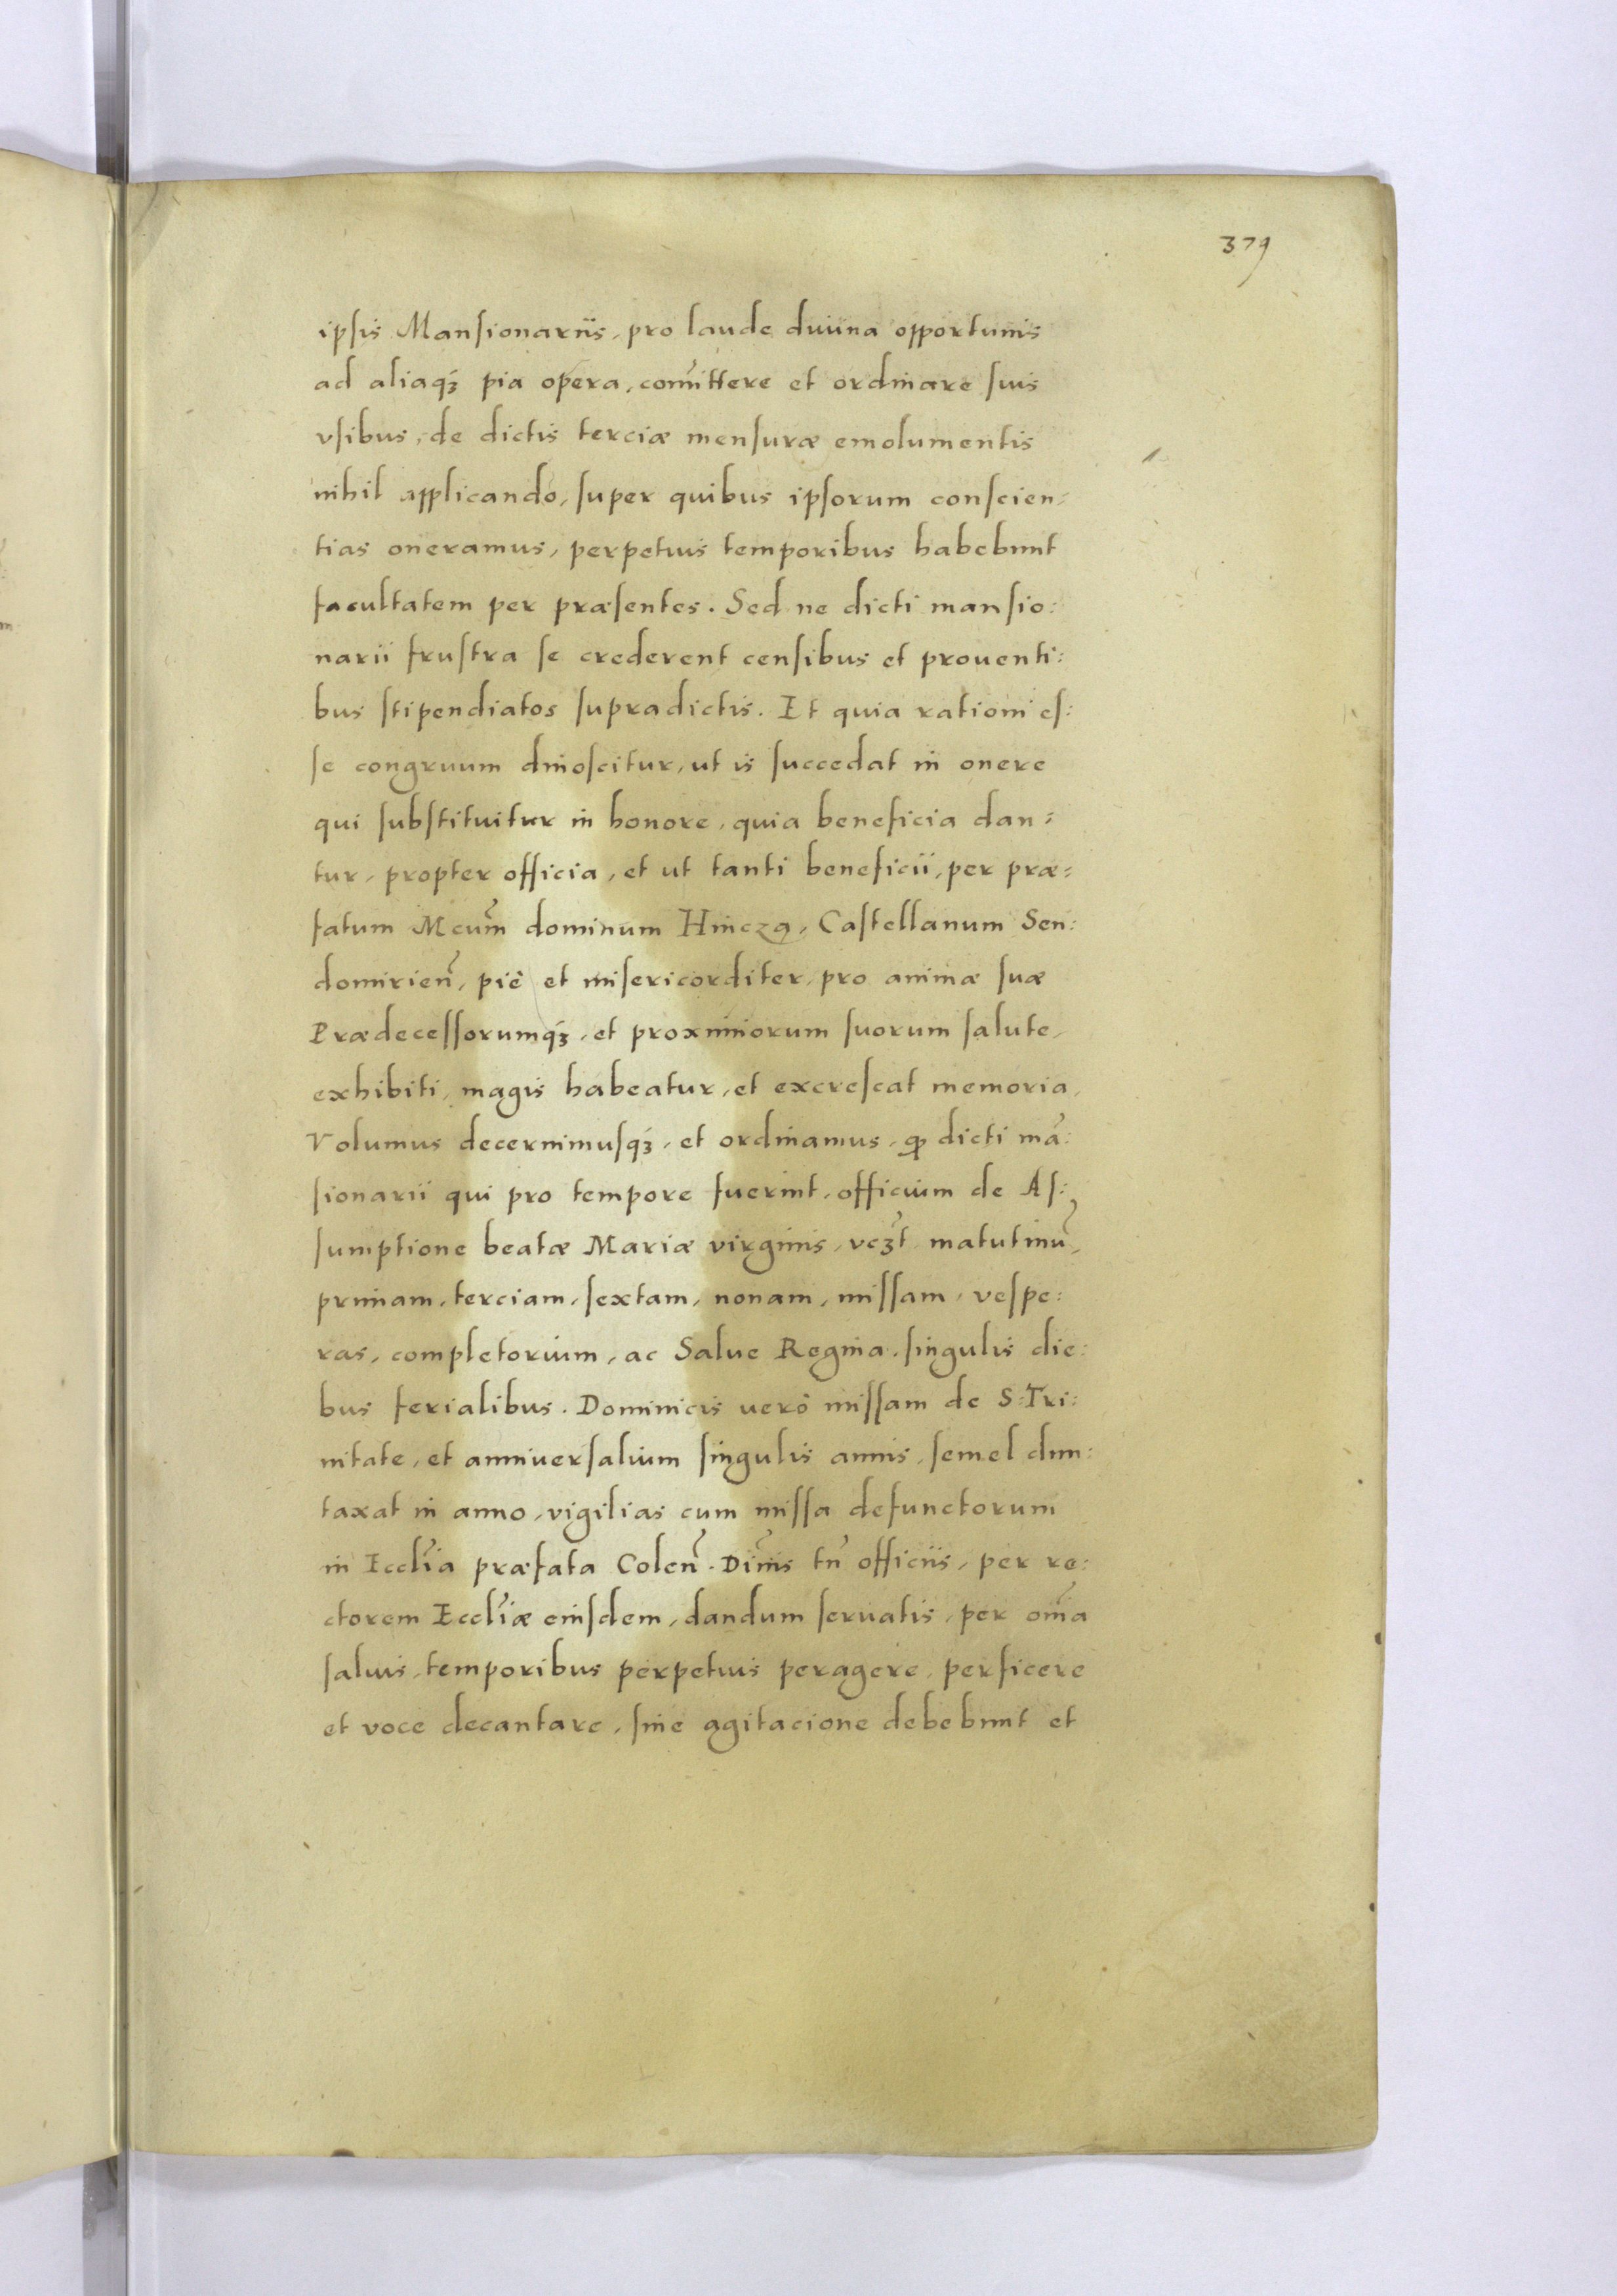 379
ipsis Mansionariis, pro laude diuina opportunis
ad aliaqꝫ pia opera, com̃ittere et ordinare suis
vsibus, de dictis terciæ mensuræ emolumentis
nihil applicando, super quibus ipsorum conscien-
tias oneramus, perpetuis temporibus habebunt
facultatem per præsentes. Sed ne dicti mansio:
narii frustra se crederent censibus et prouenti:
bus stipendiatos supradictis. Et quia rationi es:
se congruum dinoscitur, ut is succedat in onere
qui substituitur in honore, quia beneficia dan:
tur, propter officia, et ut tanti beneficii, per præ:
fatum Mcum̃ dominum Hinczą, Castellanum Sen:
domirien̄, piè et misericorditer, pro animæ suæ
Prædecessorumqꝫ, et proximiorum suorum salute,
exhibiti, magis habeatur, et excrescat memoria,
Volumus decernimusqꝫ, et ordinamus, ꝙ dicti mã:
sionarii qui pro tempore fuerint, officium de As:
sumptione beatæ Mariæ virginis, vcꝫt matutinũ,
primam, terciam, sextam, nonam, missam, vespe:
ras, completorium, ac Salue Regina, singulis die:
bus ferialibus. Dominicis uerò missam de S: Tri:
nitate, et anniuersalium singulis annis, semel dun:
taxat in anno, vigilias cum missa defunctorum
in Eccl̃ia præfata Colen̄. Diuĩs tñ officiis, per re:
ctorem Eccl̃iæ eiusdem, dandum seruatis, per om̃ia
saluis, temporibus perpetuis peragere, perficere
et voce decantare, sine agitacione debebunt et